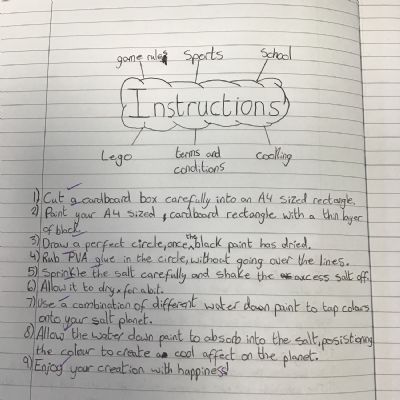 game rules sports School
Instructions
Lego terms and conditions cooking
1) Cut a cardboard box carefully into an A4 sized rectangle.
2) Paint your A4 sized, cardboard rectangle with a thin layer
of black.
3) Draw a perfect circle, once the black paint has dried.
4) Rub PVA glue in the circle, without going over the lines.
5) Sprinkle the salt carefully and shake the excess salt off.
6) Allow it to dry for abit.
7) Use a combination of different water down paint to tap colors
onto your salt planet.
8) Allow the water down paint to absorb into the salt, posistioning
the colour to create a cool affect on the planet.
9) Enjoy your creation with happiness!